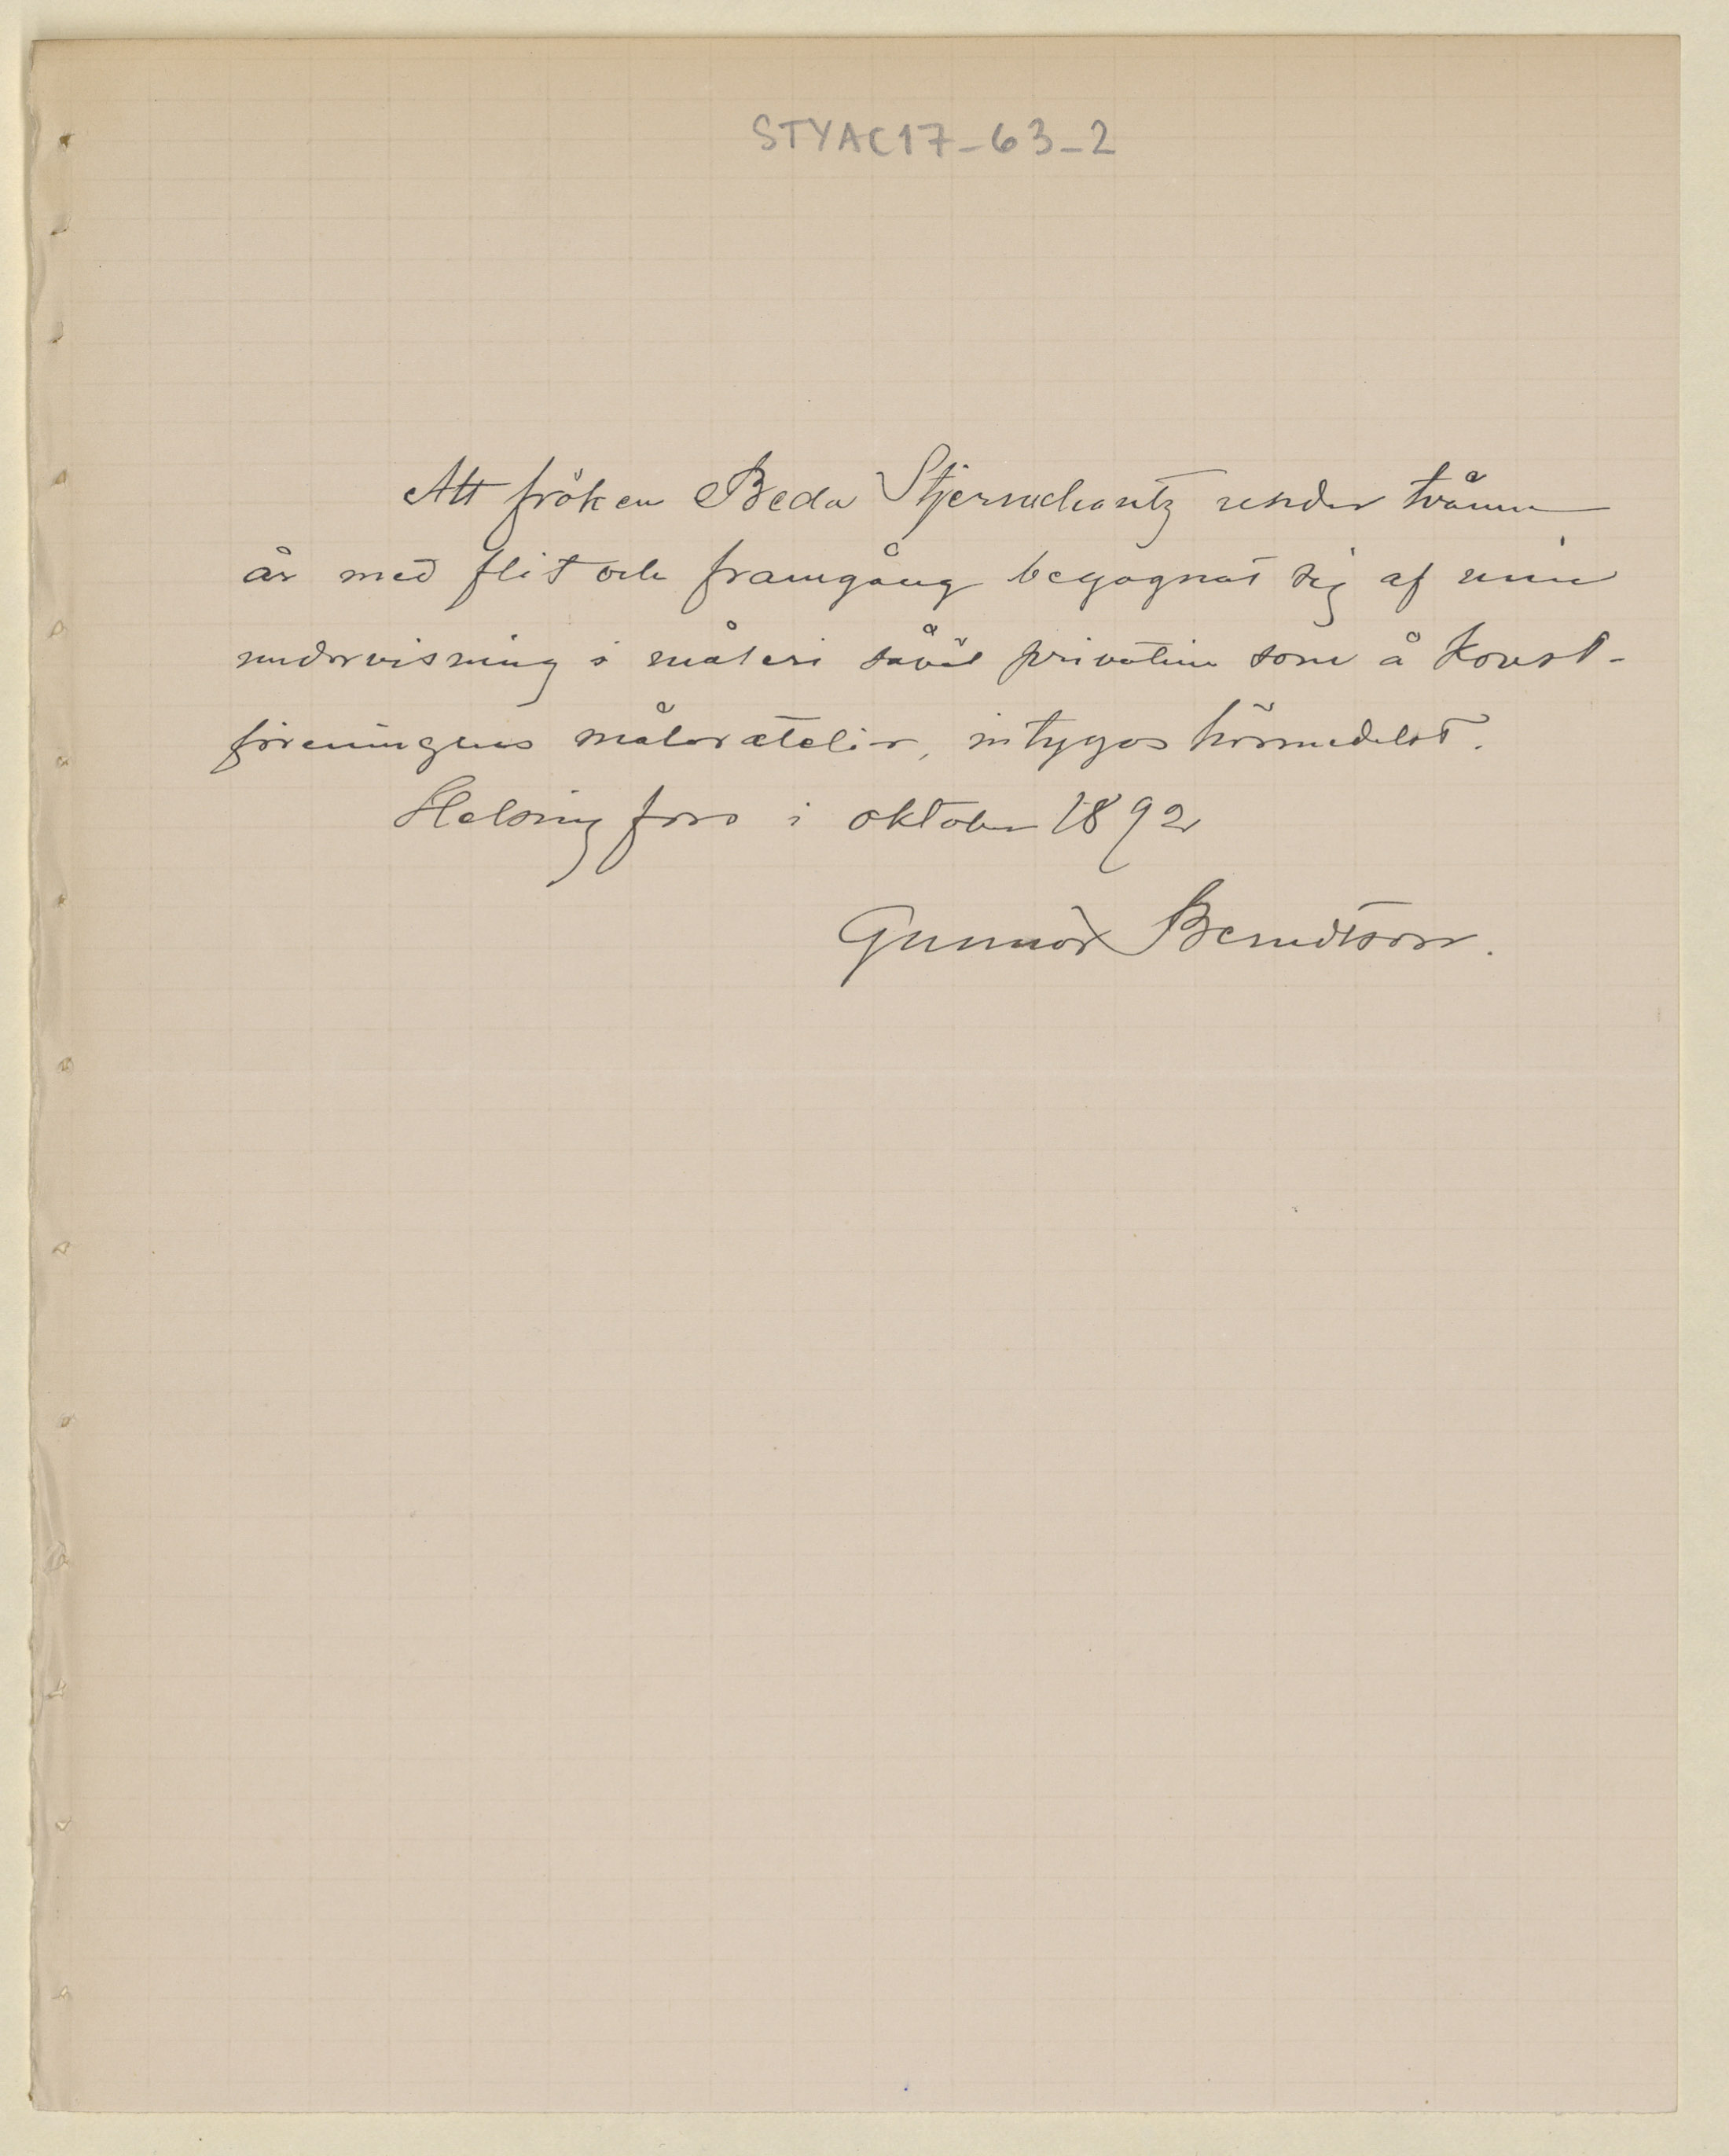 STYAC17_63_2
Att fröken Beda Stjernschantz under tvänne
år med flit och framgång begagnat sig af min
undervisning i måleri såväl privatim som å Konst-
föreningens målaratelier, intygas härmedelst.
Helsingfors i oktober 1892
Gunnar Berndtson.